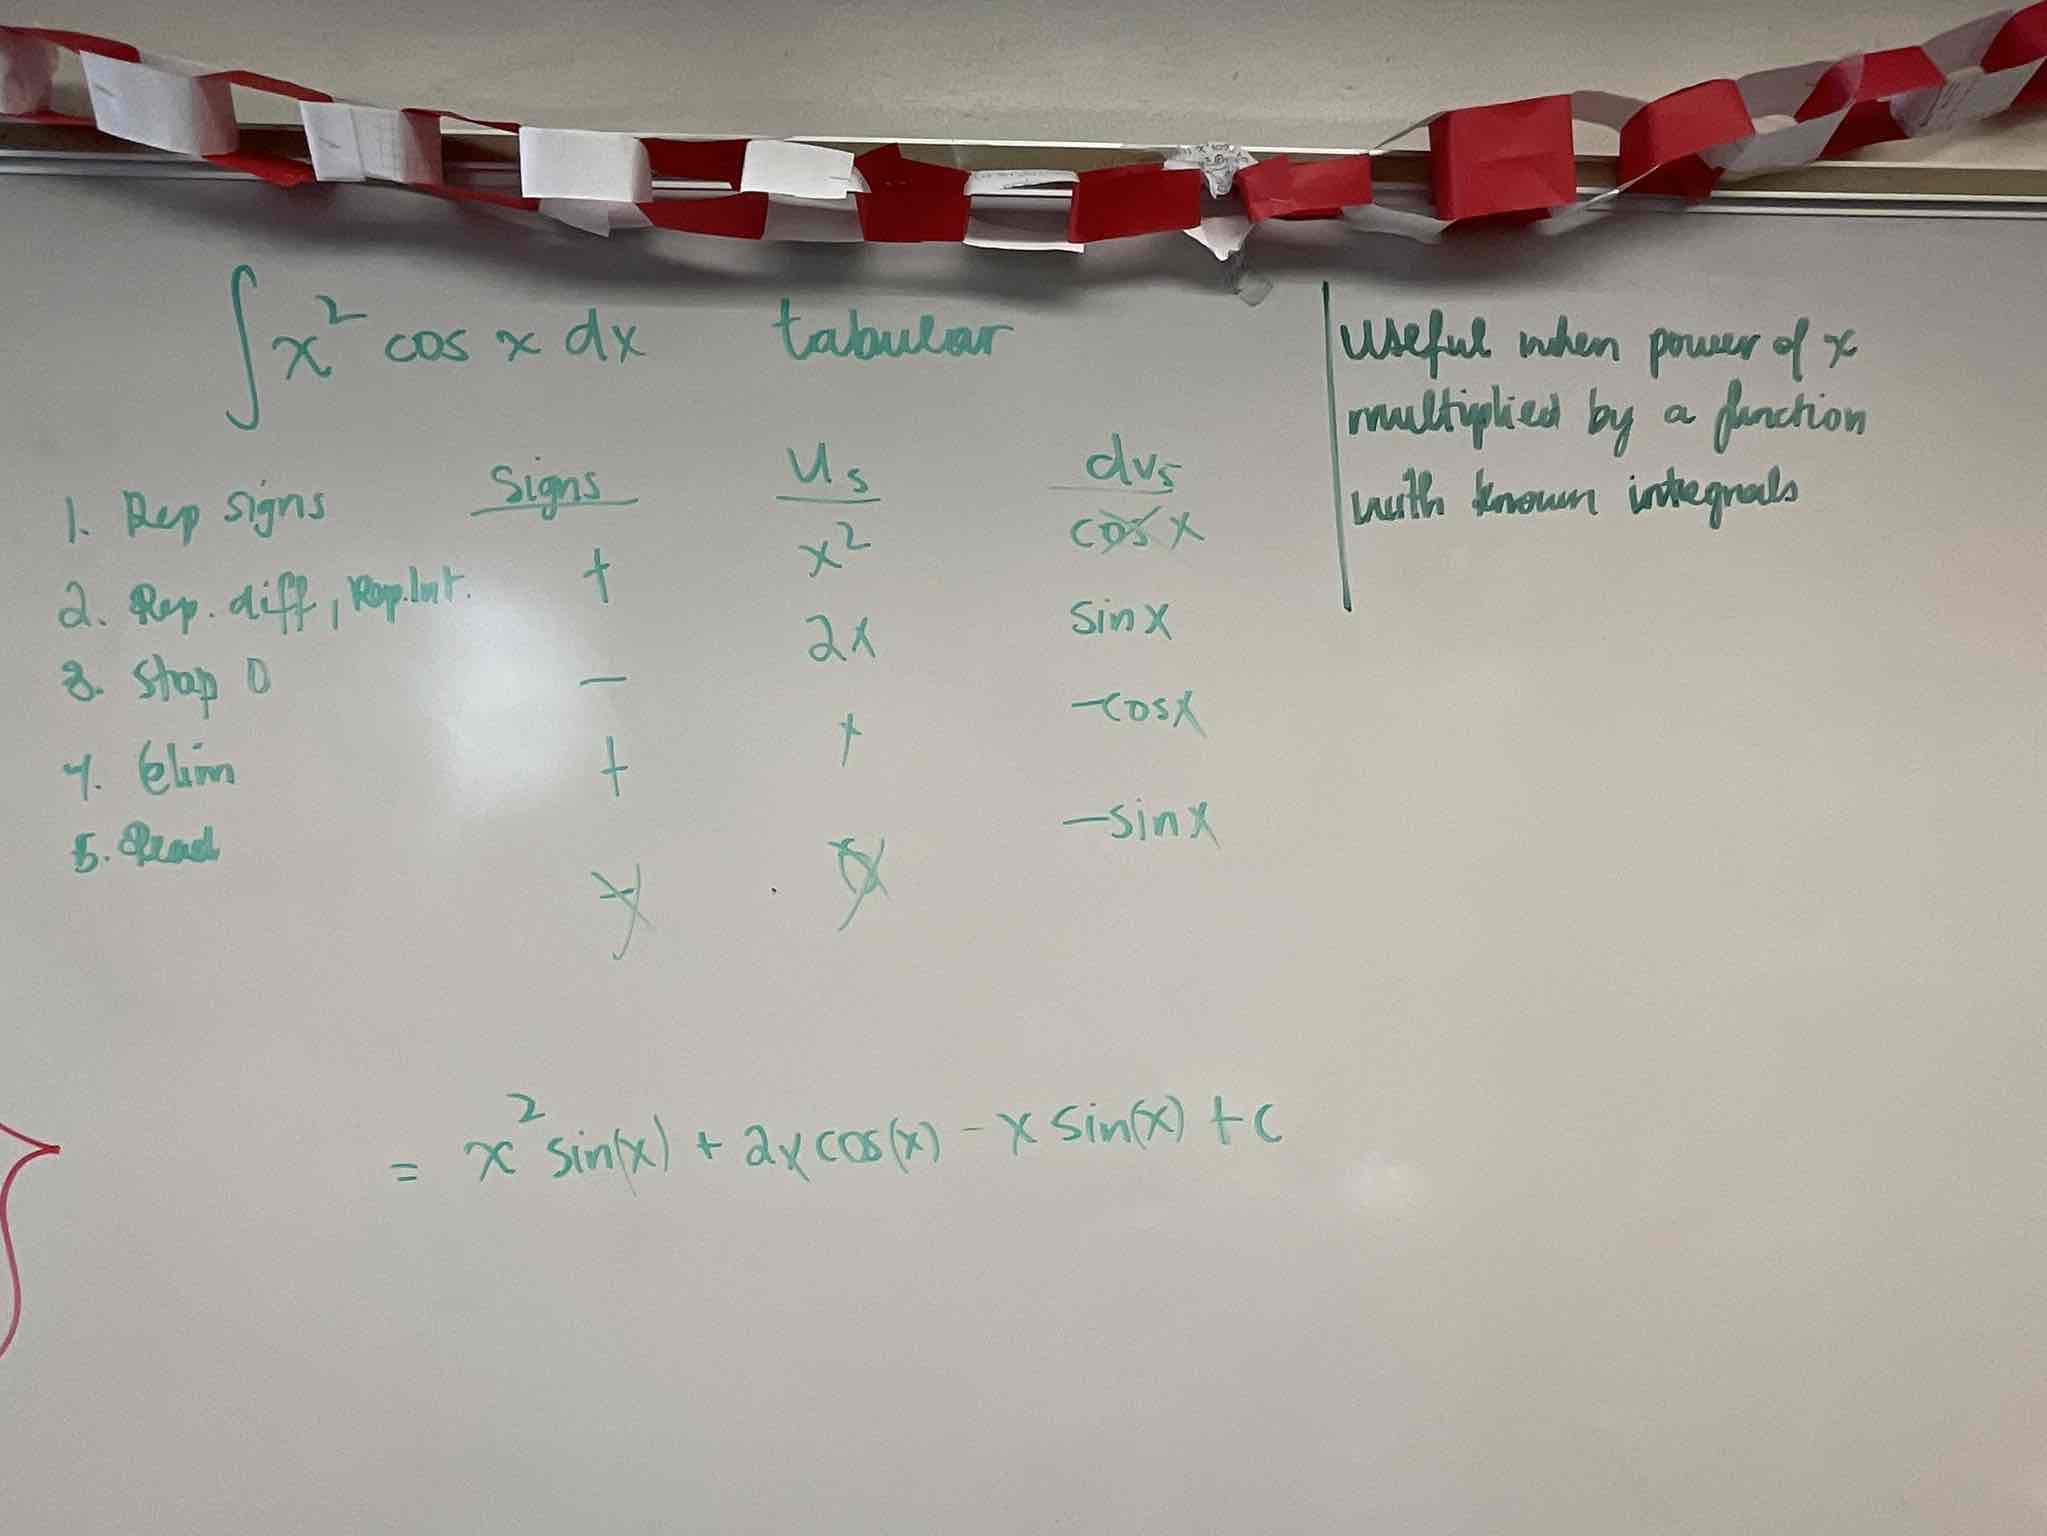 ∫x² cos x dx tabular
Useful when power of x
multiplied by a function
with known integrals
Signs us dvs
1. Rep signs + x² cos x
2. Rep. diff, Rep. Int. 2x sinx
3. Stop 0 − x -cosx
4. Elim + -sinx
5. Read
= x² sin(x) + 2x cos(x) - x sin(x) + c